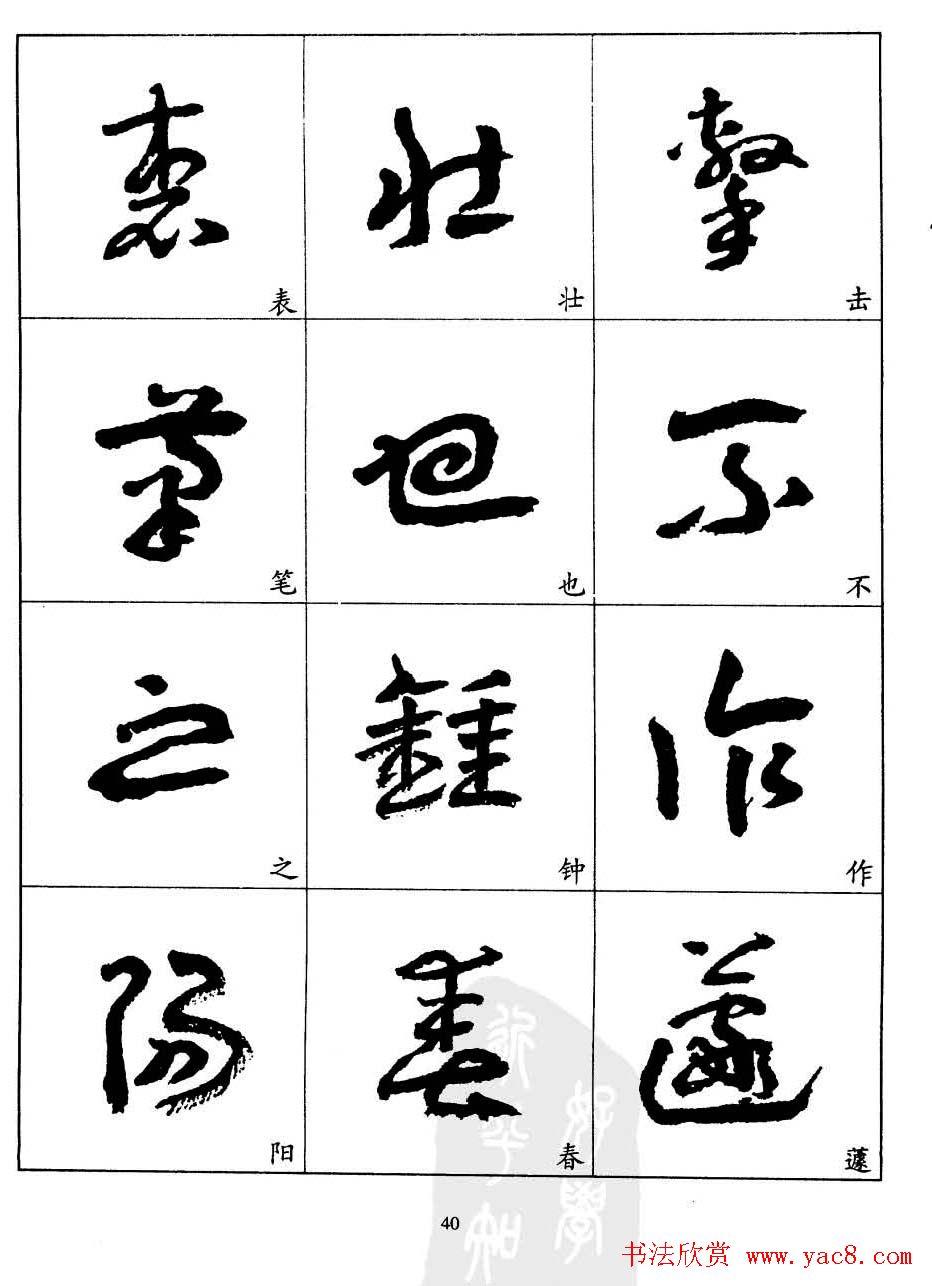 击 不 作 蘧
壮 也 钟 春
表 笔 之 阳
40
书法欣赏 www.yac8.com
好學